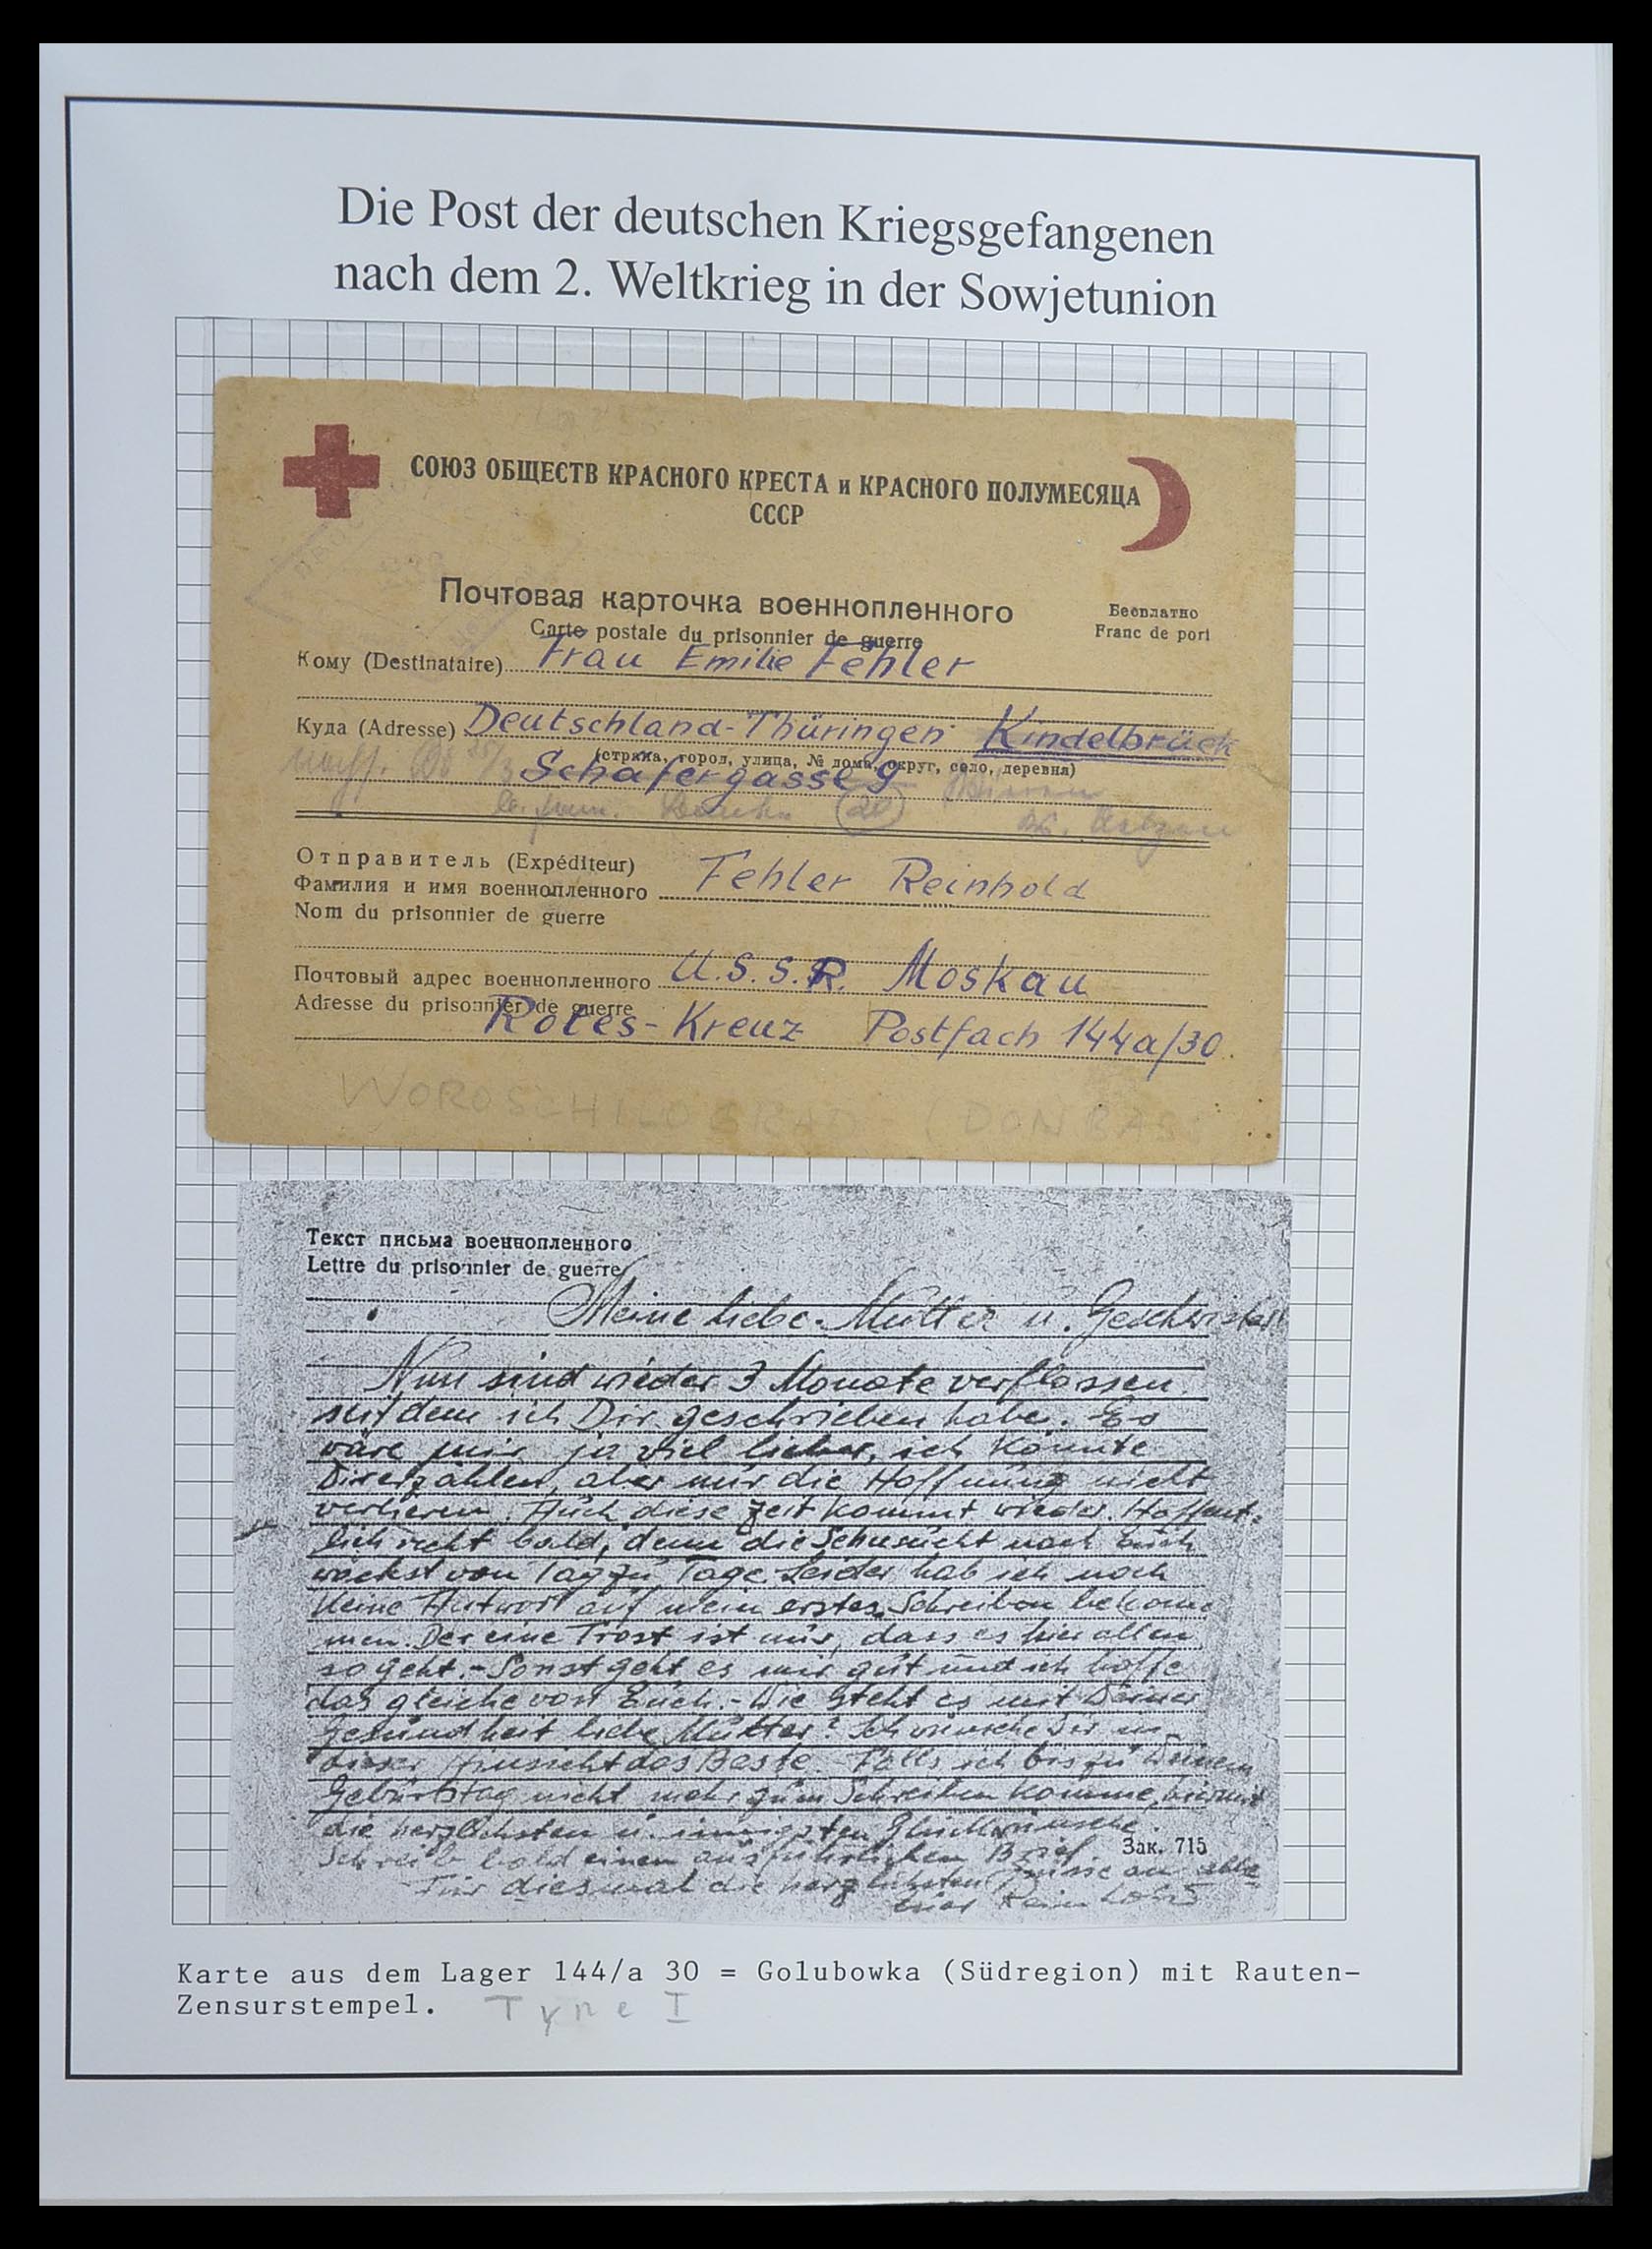 Die Post der deutschen Kriegsgefangenen
nach dem 2. Weltkrieg in der Sowjetunion
СОЮЗ ОБЩЕСТВ КРАСНОГО КРЕСТА и КРАСНОГО ПОЛУМЕСЯЦА
СССР
Почтовая карточка военнопленного
Бесплатно
Carte postale du prisonnier de guerre
Franc de port
Кому (Destinataire) Frau Emilie Fehler
Куда (Adresse) Deutschland-Thüringen Kindelbrück
(страна, город, улица, № дома, округ, село, деревня)
Schäfergasse 9
Отправитель (Expéditeur)
Фамилия и имя военнопленного Fehler Reinhold
Nom du prisonnier de guerre
Почтовый адрес военнопленного U.S.S.R. Moskau
Adresse du prisonnier de guerre
Rotes-Kreuz Postfach 144a/30
WOROSCHILOGRAD (DONBASS
Текст письма военнопленного
Lettre du prisonnier de guerre
Meine liebe Mutter u. Geschwister!
Nun sind wieder 3 Monate verflossen
seit dem ich Dir geschrieben habe. Es
wäre mir ja viel lieber, ich könnte
Dir erzählen, aber nur die Hoffnung nicht
verlieren. Auch diese Zeit kommt wieder. Hoffent-
lich recht bald, denn die Sehnsucht nach Euch
wächst von Tag zu Tage. Leider hab ich noch
keine Antwort auf mein erstes Schreiben bekom-
men. Der eine Trost ist mir, dass es hier allen
so geht. - Sonst geht es mir gut und ich hoffe
das gleiche von Euch. - Wie steht es mit Deiner
Gesundheit liebe Mutter? Ich wünsche Dir in
dieser Hinsicht das Beste. Falls ich bis zu Deinem
Geburtstag nicht mehr zum Schreiben komme, hiermit
die herzlichsten u. innigsten Glückwünsche.
Schreib bald einen ausführlichen Brief. Зак. 715
Für diesmal die herzlichsten Grüsse an alle
Euer Reinhold
Karte aus dem Lager 144/a 30 = Golubowka (Südregion) mit Rauten-
Zensurstempel. Type I